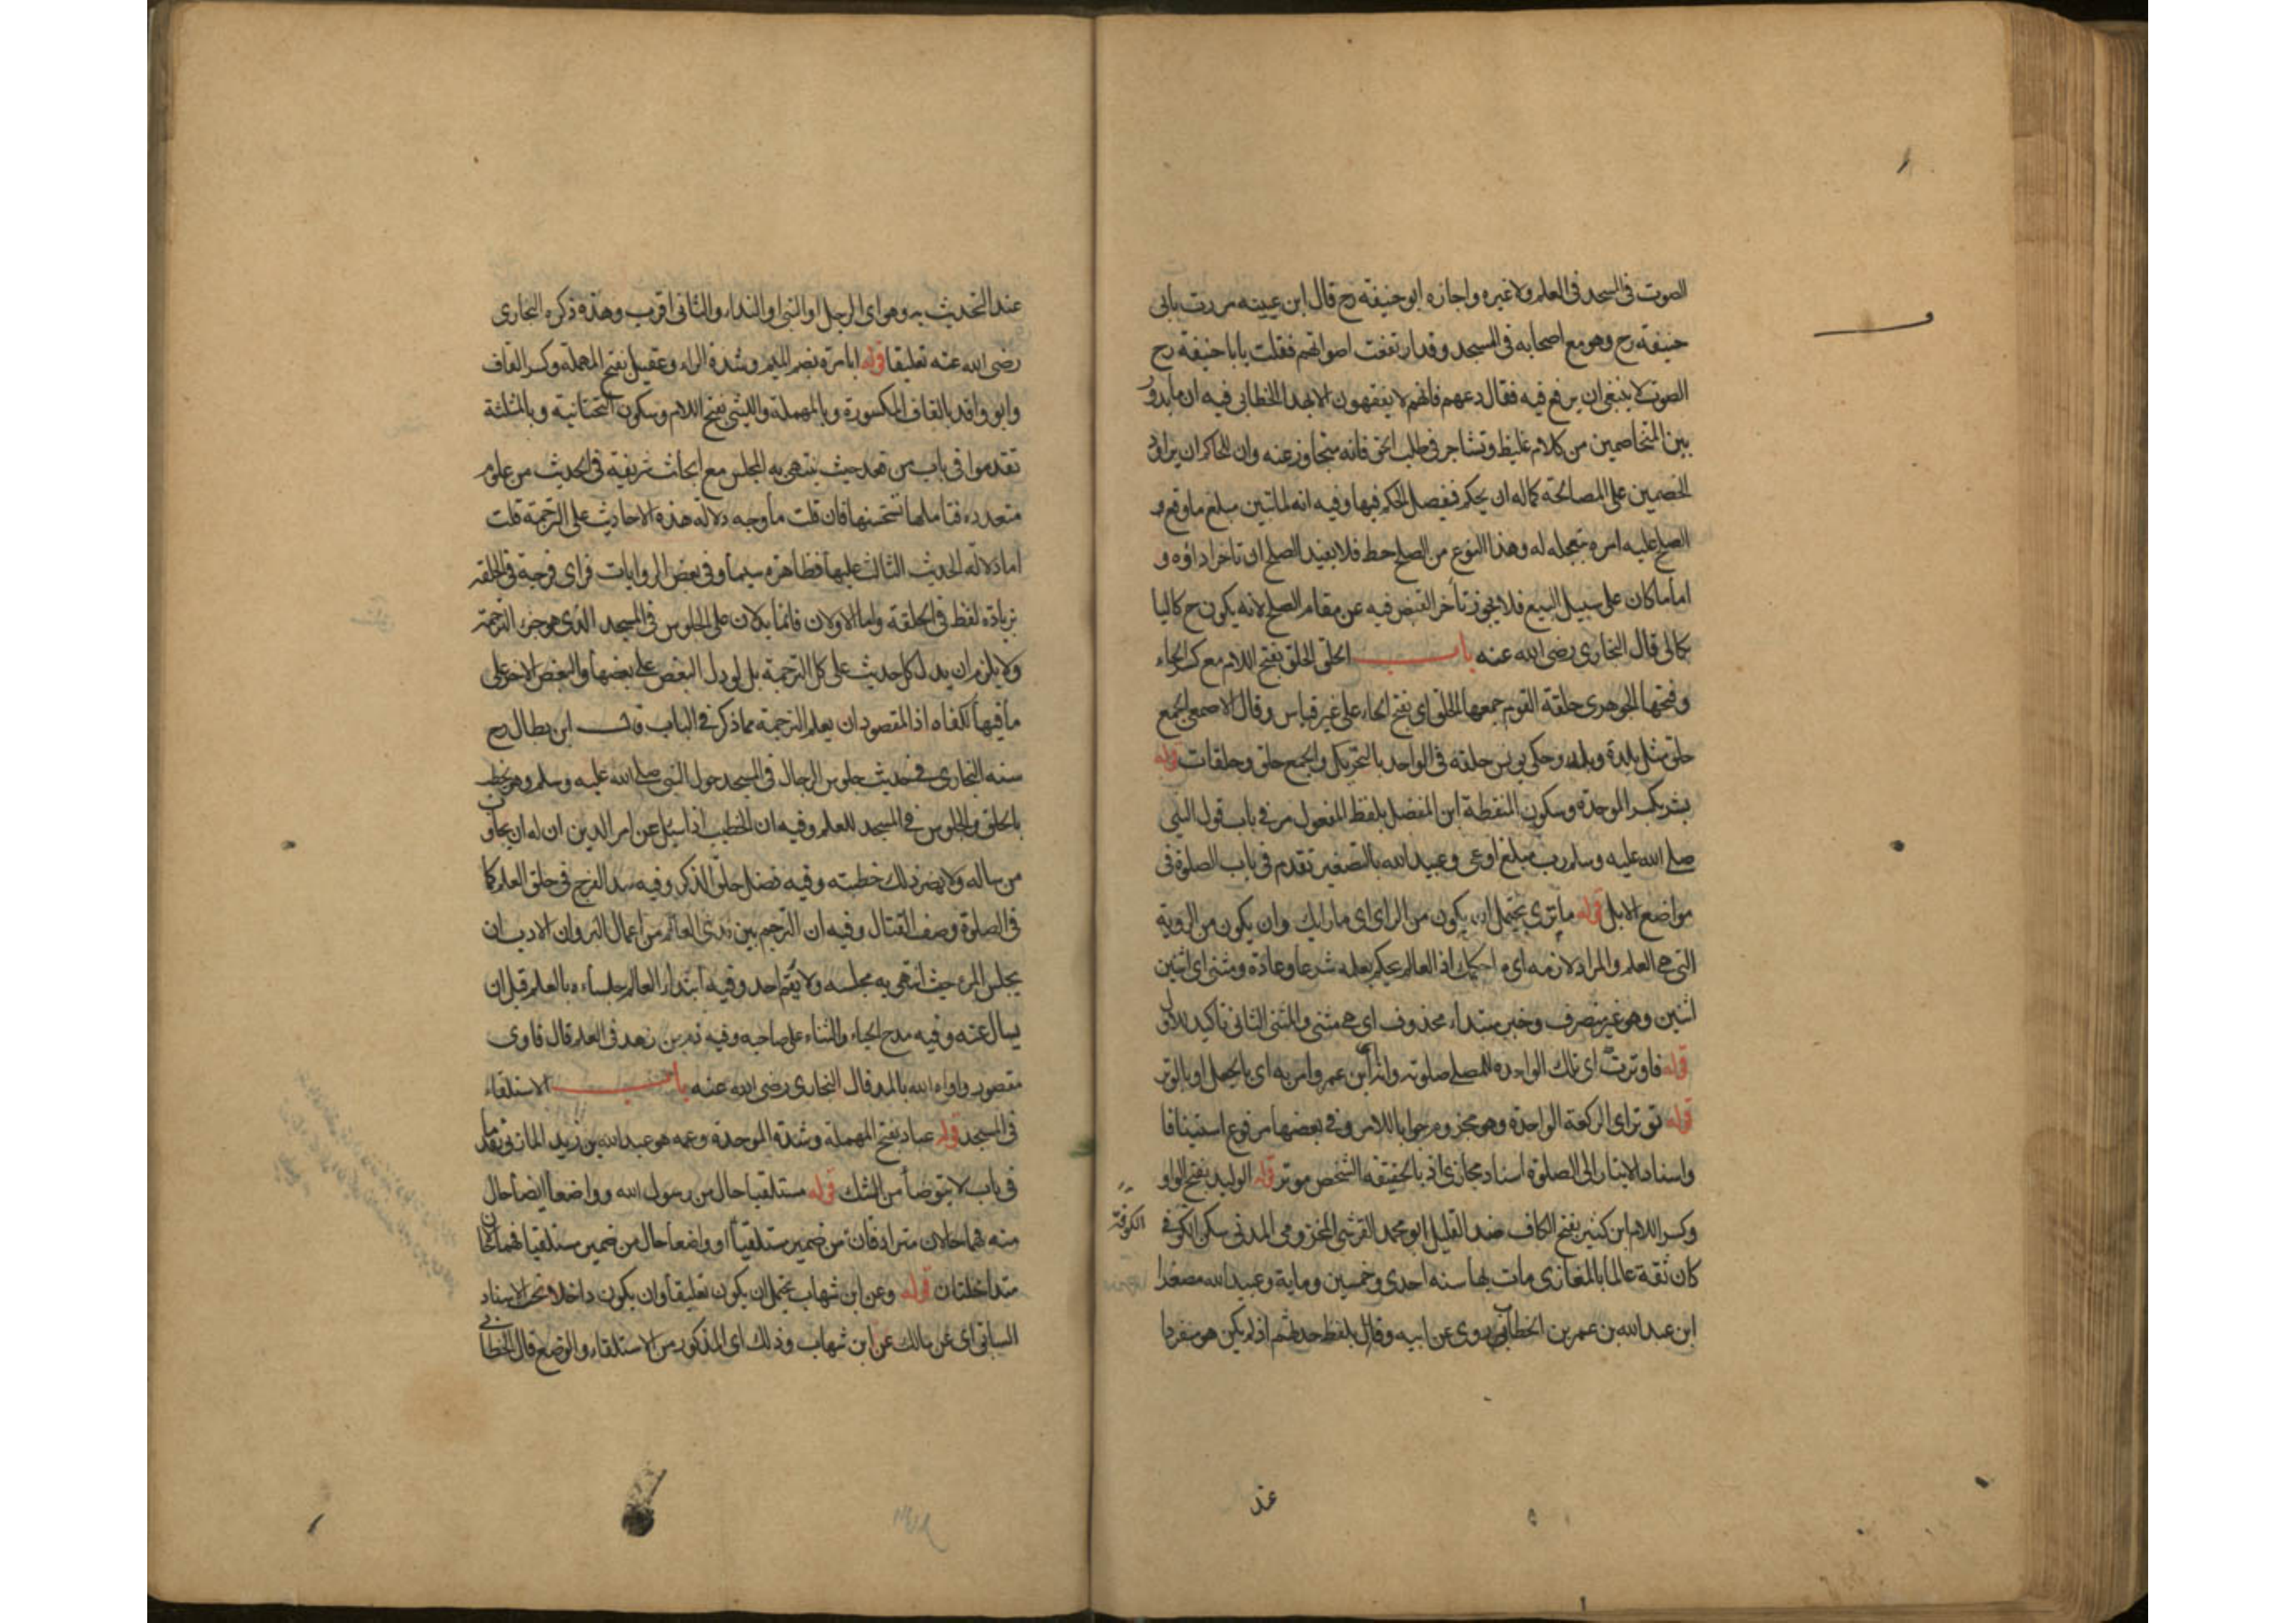 الصوت في المسجد في العلم ولا غيره واجازه ابو حنيفة رح قال ابن عيينه مررت بابي
حنيفة رح وهو مع اصحابه في المسجد وقد ارتفعت اصواتهم فقلت يا با حنيفة رح
الصوت لا ينبغي ان يرفع فيه فقال دعهم فانهم لا يفقهون الا بهذا الخطابي فيه ان ما يدور
بين المتخاصمين من كلام غليظ وتشاجر في طلب الحق فانه متجاوز عنه وان للحاكم ان يراود
الخصمين على المصالحة كما له ان يحكم فيفصل الحكم فيها وفيه انه لما تبين مبلغ ما وقع
الصلح عليه امره بتعجيله له وهذا النوع من الصلح حط فلا يفيد الصلح ان تاخر اداؤه و
اما ما كان على سبيل البيع فلا يجوز تأخر القبض فيه عن مقام الصلح لانه يكون ح كاليا
بكالي قال البخاري رضي الله عنه باب الحلق الحلق بفتح اللام مع كسر الحاء
وفتحها الجوهري حلقة القوم جمعها الحلق اي بفتح الحاء على غير قياس وقال الاصمعي الجمع
حلق مثل بدرة وبدر وحكي يونس حلقه في الواحد بالتحريك والجمع حلق وحلقات قوله
بشر بكسر الموحدة وسكون المنقطة ابن المفضل بلفظ المفعول مر في باب قول النبي
صلى الله عليه وسلم رب مبلغ اوعى وعبيد الله بالتصغير تقدم في باب الصلوة في
مواضع الابل قوله ما ترى يحتمل ان يكون من الراي اي ما رايك وان يكون من الروية
التي هي العلم والمراد لازمه اي ما حكمك اذ العالم يحكم بعلمه شرعا وعادة ومثنى اي اثنين
اثنين وهو غير منصرف وخبر مبتداء محذوف اي هي مثنى والمثنى الثاني تاكيد للاول
قوله فاوترت اي تلك الواحده للمصلي صلوته وان ابن عمر وامر به اي بالجعل او بالوتر
قوله توتر اي الركعة الواحدة وهو مجزوم جوابا للامر وفي بعضها مرفوع استينافا
واسناد الايتار الى الصلوة اسناد مجازي اذ بالحقيقة الشخص موتر قوله الوليد بفتح الواو
وكسر اللام ابن كثير بفتح الكاف ضد القليل ابو محمد القرشي المخزومي المدني سكن الكوفة
الكوفة
كان ثقة عالما بالمغازي مات بها سنه احدى وخمسين وماية وعبيد الله مصغرا
ابن عبد الله بن عمر بن الخطاب روى عن ابيه وقال بلفظ حدثهم اذ لم يكن هو منفردا
عند
عند التحديث به وهو اي الرجل او النبي او النداء والثاني اقرب وهذه ذكره البخاري
رضي الله عنه تعليقا قوله ابا مرة بضم الميم وشدة الراء وعقيل بفتح المهملة وكسر القاف
وابو واقد بالقاف المكسورة وبالمهملة والليثي بفتح اللام وسكون التحتانية وبالمثلثة
تقدموا في باب من قعد حيث ينتهي به المجلس مع ابحاث شريفة في الحديث من علوم
متعدده فتاملها تستحسنها فان قلت ما وجه دلالة هذه الاحاديث على الترجمة قلت
اما دلالة الحديث الثالث عليها فظاهرة سيما وفي بعض الروايات فراى فرجة في الحلقه
بزيادة لفظ في الحلقة واما الاولان فانما يدلان على الجلوس في المسجد الذي هو جزء الترجمة
ولا يلزم ان يدل كل حديث على كل الترجمة بل لو دل البعض على بعضها والبعض الاخر على
ما فيها لكفاه اذ المقصود ان يعلم الترجمة مما ذكر في الباب قال ابن بطال رح
سنه البخاري في حديث جلوس الرجال في المسجد حول النبي صلى الله عليه وسلم وهو يخطب
بالحلق والجلوس في المسجد للعلم وفيه ان الخطيب اذا سئل عن امر الدين ان له ان يجاوب
من ساله ولا يضر ذلك خطبته وفيه فضل حلق الذكر وفيه سد الفرج في حلق العلم كما
في الصلوة وصف القتال وفيه ان التزاحم بين يدي العالم من اعمال البر وان الادب ان
يجلس المرء حيث انتهى به مجلسه ولا يقيم احد وفيه ابتداء العالم جلساءه بالعلم قبل ان
يسال عنه وفيه مدح الحياء والثناء على صاحبه وفيه ذم من زهد في العلم قال فاوى
مقصور واواه الله بالمد قال البخاري رضي الله عنه باب الاستلقاء
في المسجد قوله عباد بفتح المهملة وشدة الموحدة وعمه هو عبد الله بن زيد المازني تقدما
في باب لا يتوضا من الشك قوله مستلقيا حال من رسول الله وواضعا ايضا حال
منه فهما حالان مترادفان من ضمير مستلقيا او واضعا حال من ضمير مستلقيا فهما حالان
متداخلتان قوله وعن ابن شهاب يحتمل ان يكون تعليقا وان يكون داخلا تحت الاسناد
السابق اي عن مالك عن ابن شهاب وذلك اي المذكور من الاستلقاء والوضع قال الخطابي